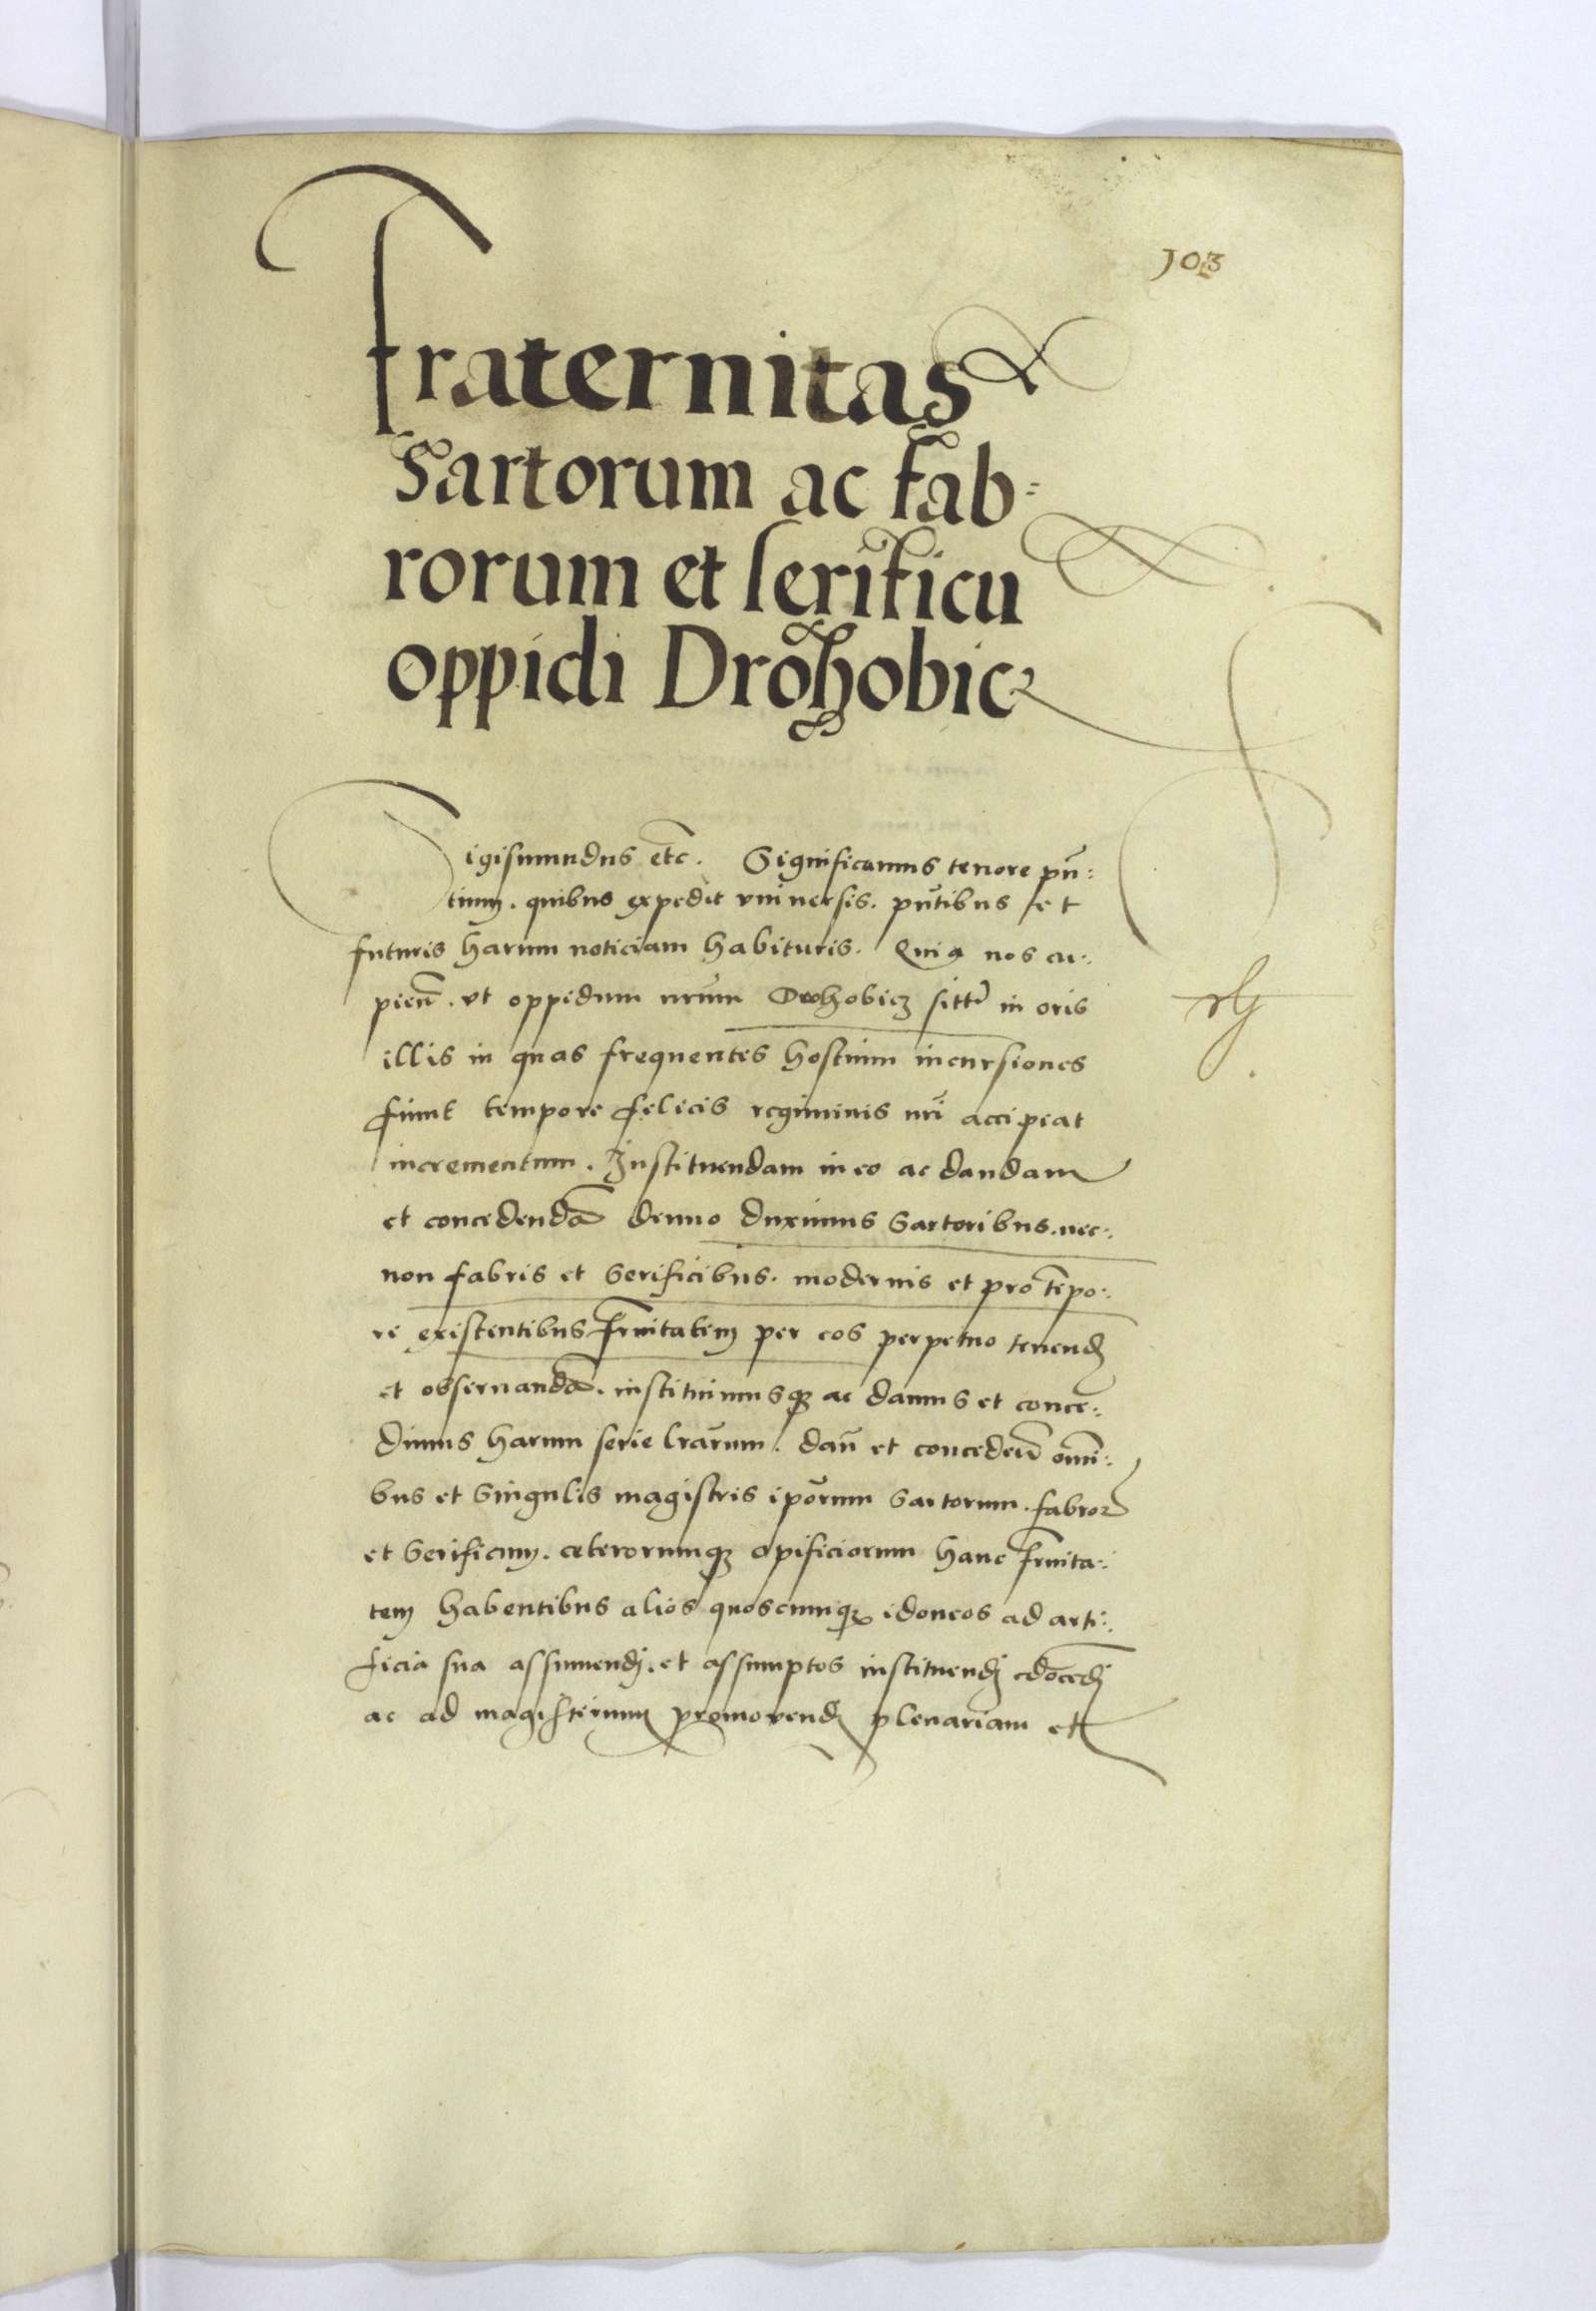 103
Fraternitas
Sartorum ac fab=
rorum et serificu
oppidi Drohobicz
Sigismundus etc̃. Significamus tenore pñ:
tium. quibus expedit vniuersis. pñtibus et
futuris harum noticiam habituris. Quia nos cu:
pieñ. vt oppidum nr̃um Drohobicz sitt̃ in oris
illis in quas frequentes hostium incursiones
fiunt tempore felicis regiminis nr̃i accipeat
incrementum. Instituendam in eo ac dandam
et concedendã denuo duximus Sartoribus. nec:
non fabris et Serificibus. modernis et pro tẽpo:
re existentibus fr̃nitatem per eos perpetuo tenend
et obseruandã. instituimusqȝ ac damus et conce:
dimus harum serie lr̃arum. dañ et concedeñ om̃i:
bus et Singulis magistris ip̃orum Sartorum. fabror
et Serificum. ceterorumqȝ opificiorum hanc fr̃nita:
tem habentibus alios quoscumqȝ idoneos ad arti:
ficia sua assumendi. et assumptos instituendi edocẽdi
ac ad magisterium promovend plenariam et